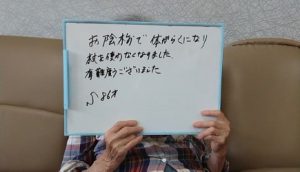 お陰様で体がらくになり
杖を使わなくなりました
有難度うございました
S 86才